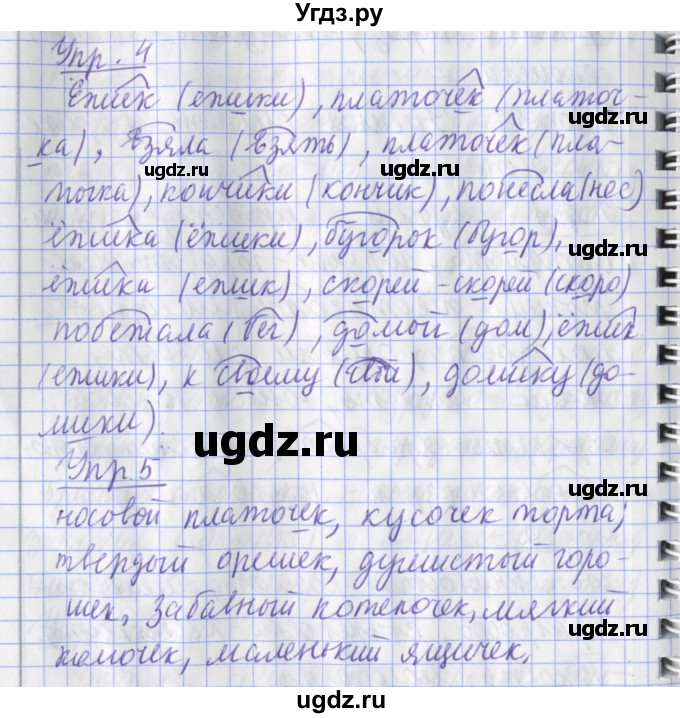 Угдз.ру
Упр. 4
Ёжик (ежики), платочек (платоч-
ка), взяла (взять), платочек (пла-
точка), кончики (кончик), понесла (нес)
ёжика (ёжики), бугорок (бугор),
ёжика (ежик), скорей-скорей (скоро)
побежала (бег), домой (дом), ёжик
(ежики), к своему (свой), домику (до-
мики).
Упр. 5
носовой платочек, кусочек торта,
твердый орешек, душистый горо-
шек, забавный котеночек, мягкий
комочек, маленький ящичек.
ugdz.ru
ugdz.ru
ugdz.ru
ugdz.ru
ugdz.ru
ugdz.ru
ugdz.ru
ugdz.ru
ugdz.ru
ugdz.ru
ugdz.ru